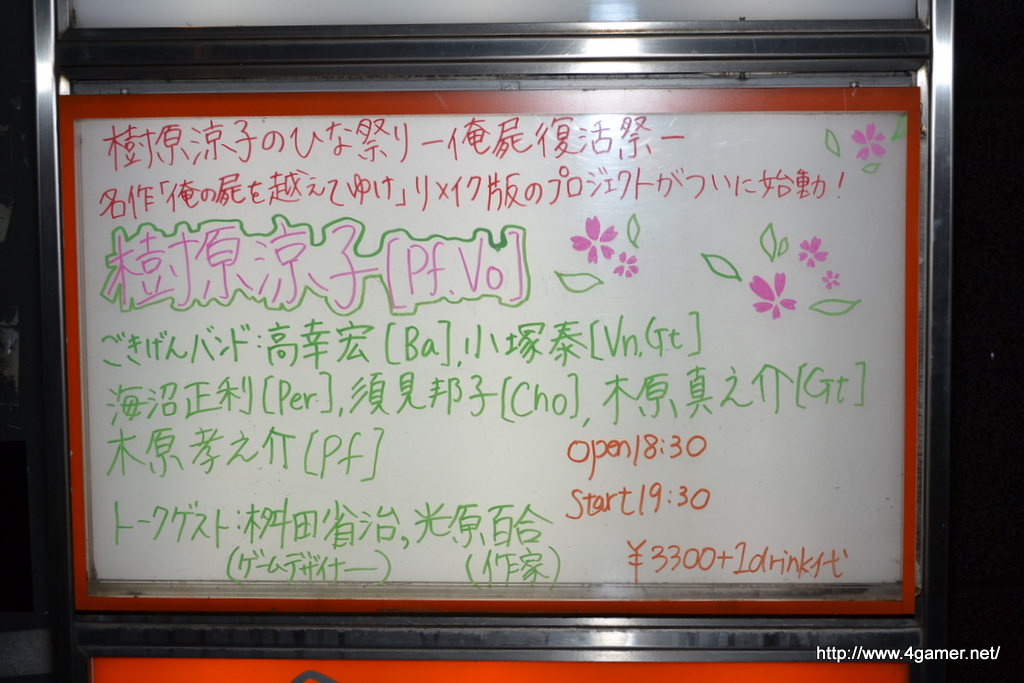 樹原涼子のひな祭り－俺屍復活祭－
名作「俺の屍を越えてゆけ」リメイク版のプロジェクトがついに始動!
樹原涼子[Pf.Vo]
ごきげんバンド:高幸宏[Ba],小塚泰[Vn,Gt]
海沼正利[Per],須見邦子[Cho],木原真之介[Gt]
木原孝之介[Pf]
open18:30
Start19:30
トークゲスト:桝田省治,光原百合
(ゲームデザイナー) (作家)
¥3300+1drink代
http://www.4gamer.net/